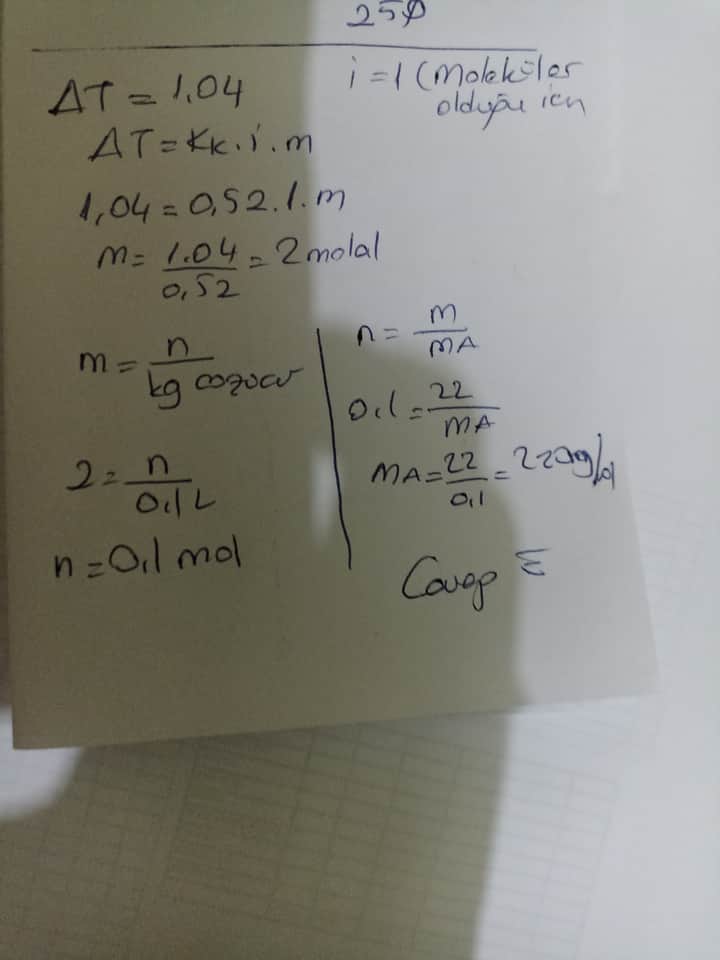 250
ΔT = 1.04
i = 1 (Moleküler
olduğu icn
ΔT = Kk. i. m
1,04 = 0,52. 1. m
m = 1.04 / 0,52 = 2 molal
m = n / kg cozucu
2 = n / 0,1 L
n = 0,1 mol
n = m / MA
0,1 = 22 / MA
MA = 22 / 0,1 = 220g/
Cevap E